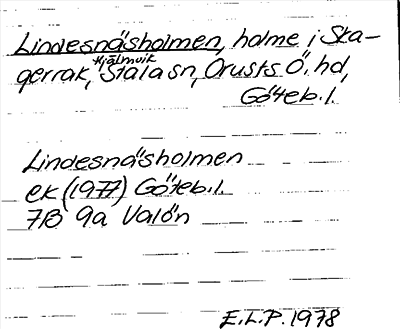 Lindesnäsholmen, holme i Ska-
Hjälmvik
gerrak, Stala sn, Orusts Ö. hd,
Göteb. l.
Lindesnäsholmen
ek (1977) Göteb. l.
7B 9a Valön
E.L.P. 1978